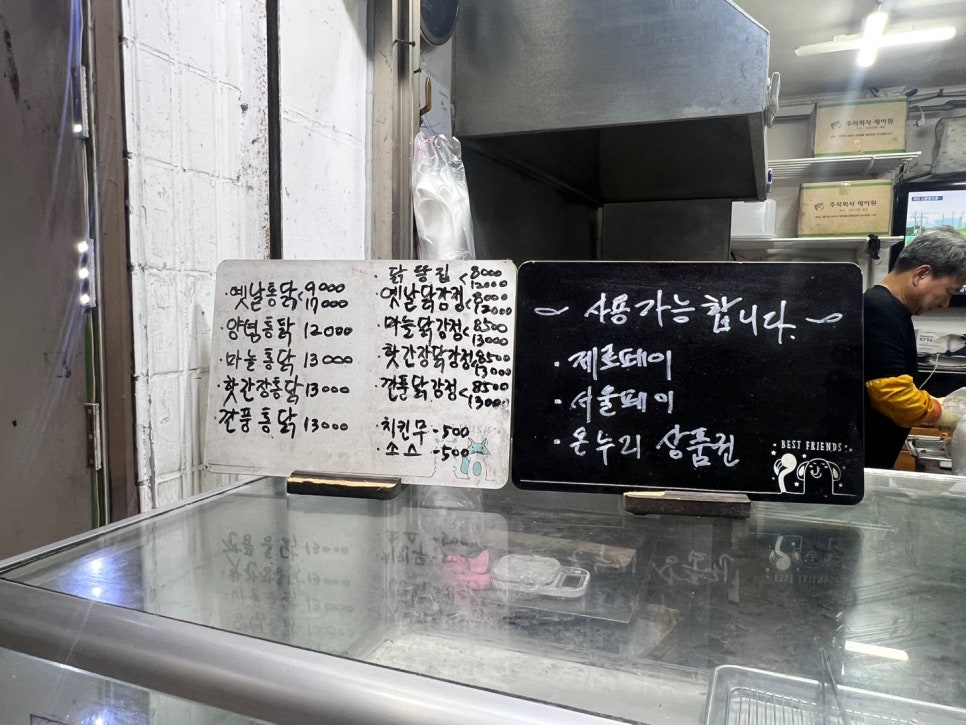 · 옛날통닭 < 9000
17000
· 양념통닭 12000
· 마늘통닭 13000
· 핫간장통닭 13000
· 깐풍통닭 13000
· 닭똥집 < 8000
12000
· 옛날닭강정 < 8000
12000
· 마늘닭강정 < 8500
13000
· 핫간장닭강정 < 8500
13000
· 깐풍닭강정 < 8500
13000
· 치킨무 - 500
· 소스 - 500
~ 사용가능합니다. ~
· 제로페이
· 서울페이
· 온누리 상품권
BEST FRIENDS
주식회사 제이원
주식회사 제이원